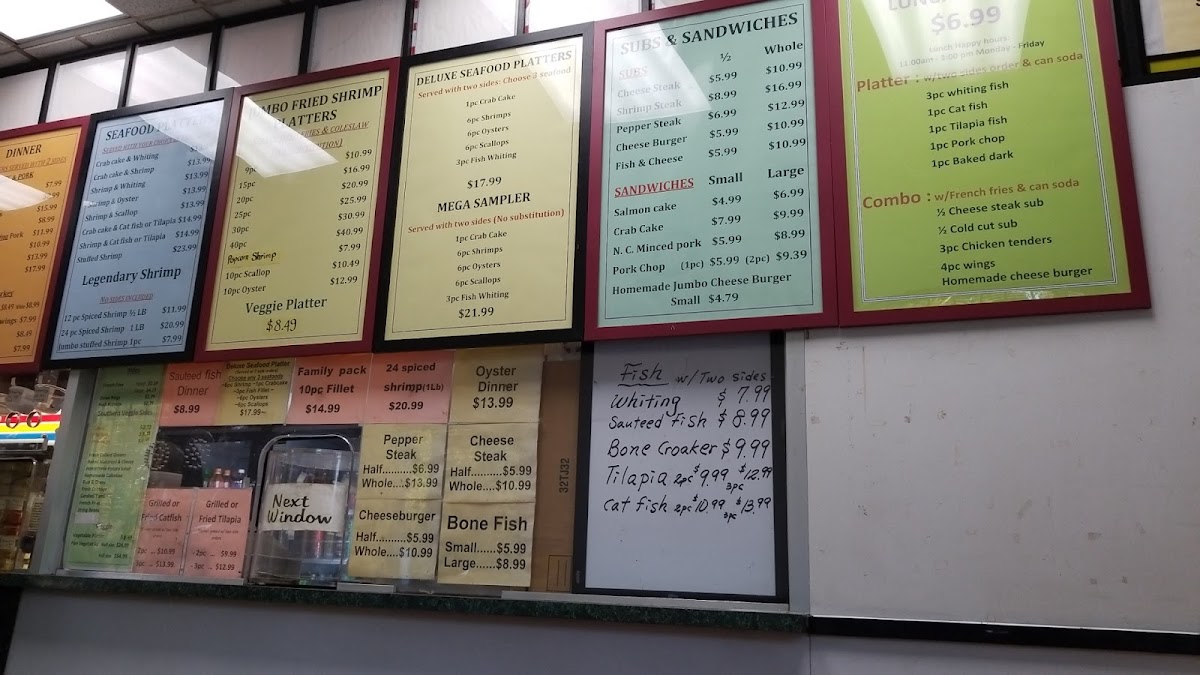 DINNER
& PORK
$7.99
$15.99
$8.99
$11.99
$10.99
$13.99
$17.99
$7.99
$8.49
$7.99
SEAFOOD PLATTERS
Crab cake & Whiting
Crab cake & Shrimp $13.99
Shrimp & Whiting $13.99
Shrimp & Oyster $13.99
Shrimp & Scallop $13.99
Crab cake & Cat fish or Tilapia $14.99
Shrimp & Cat fish or Tilapia $14.99
Stuffed Shrimp $23.99
Legendary Shrimp
NO SIDES INCLUDED
12 pc Spiced Shrimp ½ LB $11.99
24 pc Spiced Shrimp 1 LB $20.99
Jumbo stuffed Shrimp 1pc $7.99
MBO FRIED SHRIMP
PLATTERS
FRIES & COLESLAW
9pc $10.99
15pc $16.99
20pc $20.99
25pc $25.99
30pc $30.99
40pc $40.99
Popcorn Shrimp $7.99
10pc Scallop $10.49
10pc Oyster $12.99
Veggie Platter
$8.49
DELUXE SEAFOOD PLATTERS
Served with two sides: Choose 3 seafood
1pc Crab Cake
6pc Shrimps
6pc Oysters
6pc Scallops
3pc Fish Whiting
$17.99
MEGA SAMPLER
Served with two sides (No substitution)
1pc Crab Cake
6pc Shrimps
6pc Oysters
6pc Scallops
3pc Fish Whiting
$21.99
SUBS & SANDWICHES
SUBS ½ Whole
Cheese Steak $5.99 $10.99
Shrimp Steak $8.99 $16.99
Pepper Steak $6.99 $12.99
Cheese Burger $5.99 $10.99
Fish & Cheese $5.99 $10.99
SANDWICHES Small Large
Salmon cake $4.99 $6.99
Crab Cake $7.99 $9.99
N. C. Minced pork $5.99 $8.99
Pork Chop (1pc) $5.99 (2pc) $9.39
Homemade Jumbo Cheese Burger
Small $4.79
$6.99
Lunch Happy hours:
11:00am - 3:00 pm Monday - Friday
Platter : w/two sides order & can soda
3pc whiting fish
1pc Cat fish
1pc Tilapia fish
1pc Pork chop
1pc Baked dark
Combo : w/French fries & can soda
½ Cheese steak sub
½ Cold cut sub
3pc Chicken tenders
4pc wings
Homemade cheese burger
Southern Veggie Sides
Sauteed fish
Dinner
$8.99
Deluxe Seafood Platter
Choose any 3 seafoods
~6pc Shrimp ~1pc Crabcake
~3pc Fish Fillet~
~6pc Oysters
~6pc Scallops
$17.99~
Family pack
10pc Fillet
$14.99
24 spiced
shrimp(1Lb)
$20.99
Oyster
Dinner
$13.99
Pepper
Steak
Half..........$6.99
Whole....$13.99
Cheese
Steak
Half..........$5.99
Whole....$10.99
Cheeseburger
Half..........$5.99
Whole....$10.99
Bone Fish
Small......$5.99
Large......$8.99
Grilled or
Fried Catfish
2pc ... $10.99
3pc ... $13.99
Grilled or
Fried Tilapia
2pc ... $9.99
3pc ... $12.99
Next
Window
32TJ32
Fish w/Two sides
Whiting $7.99
Sauteed fish $8.99
Bone Croaker $9.99
Tilapia 2pc $9.99 3pc $12.99
Cat fish 2pc $10.99 3pc $13.99